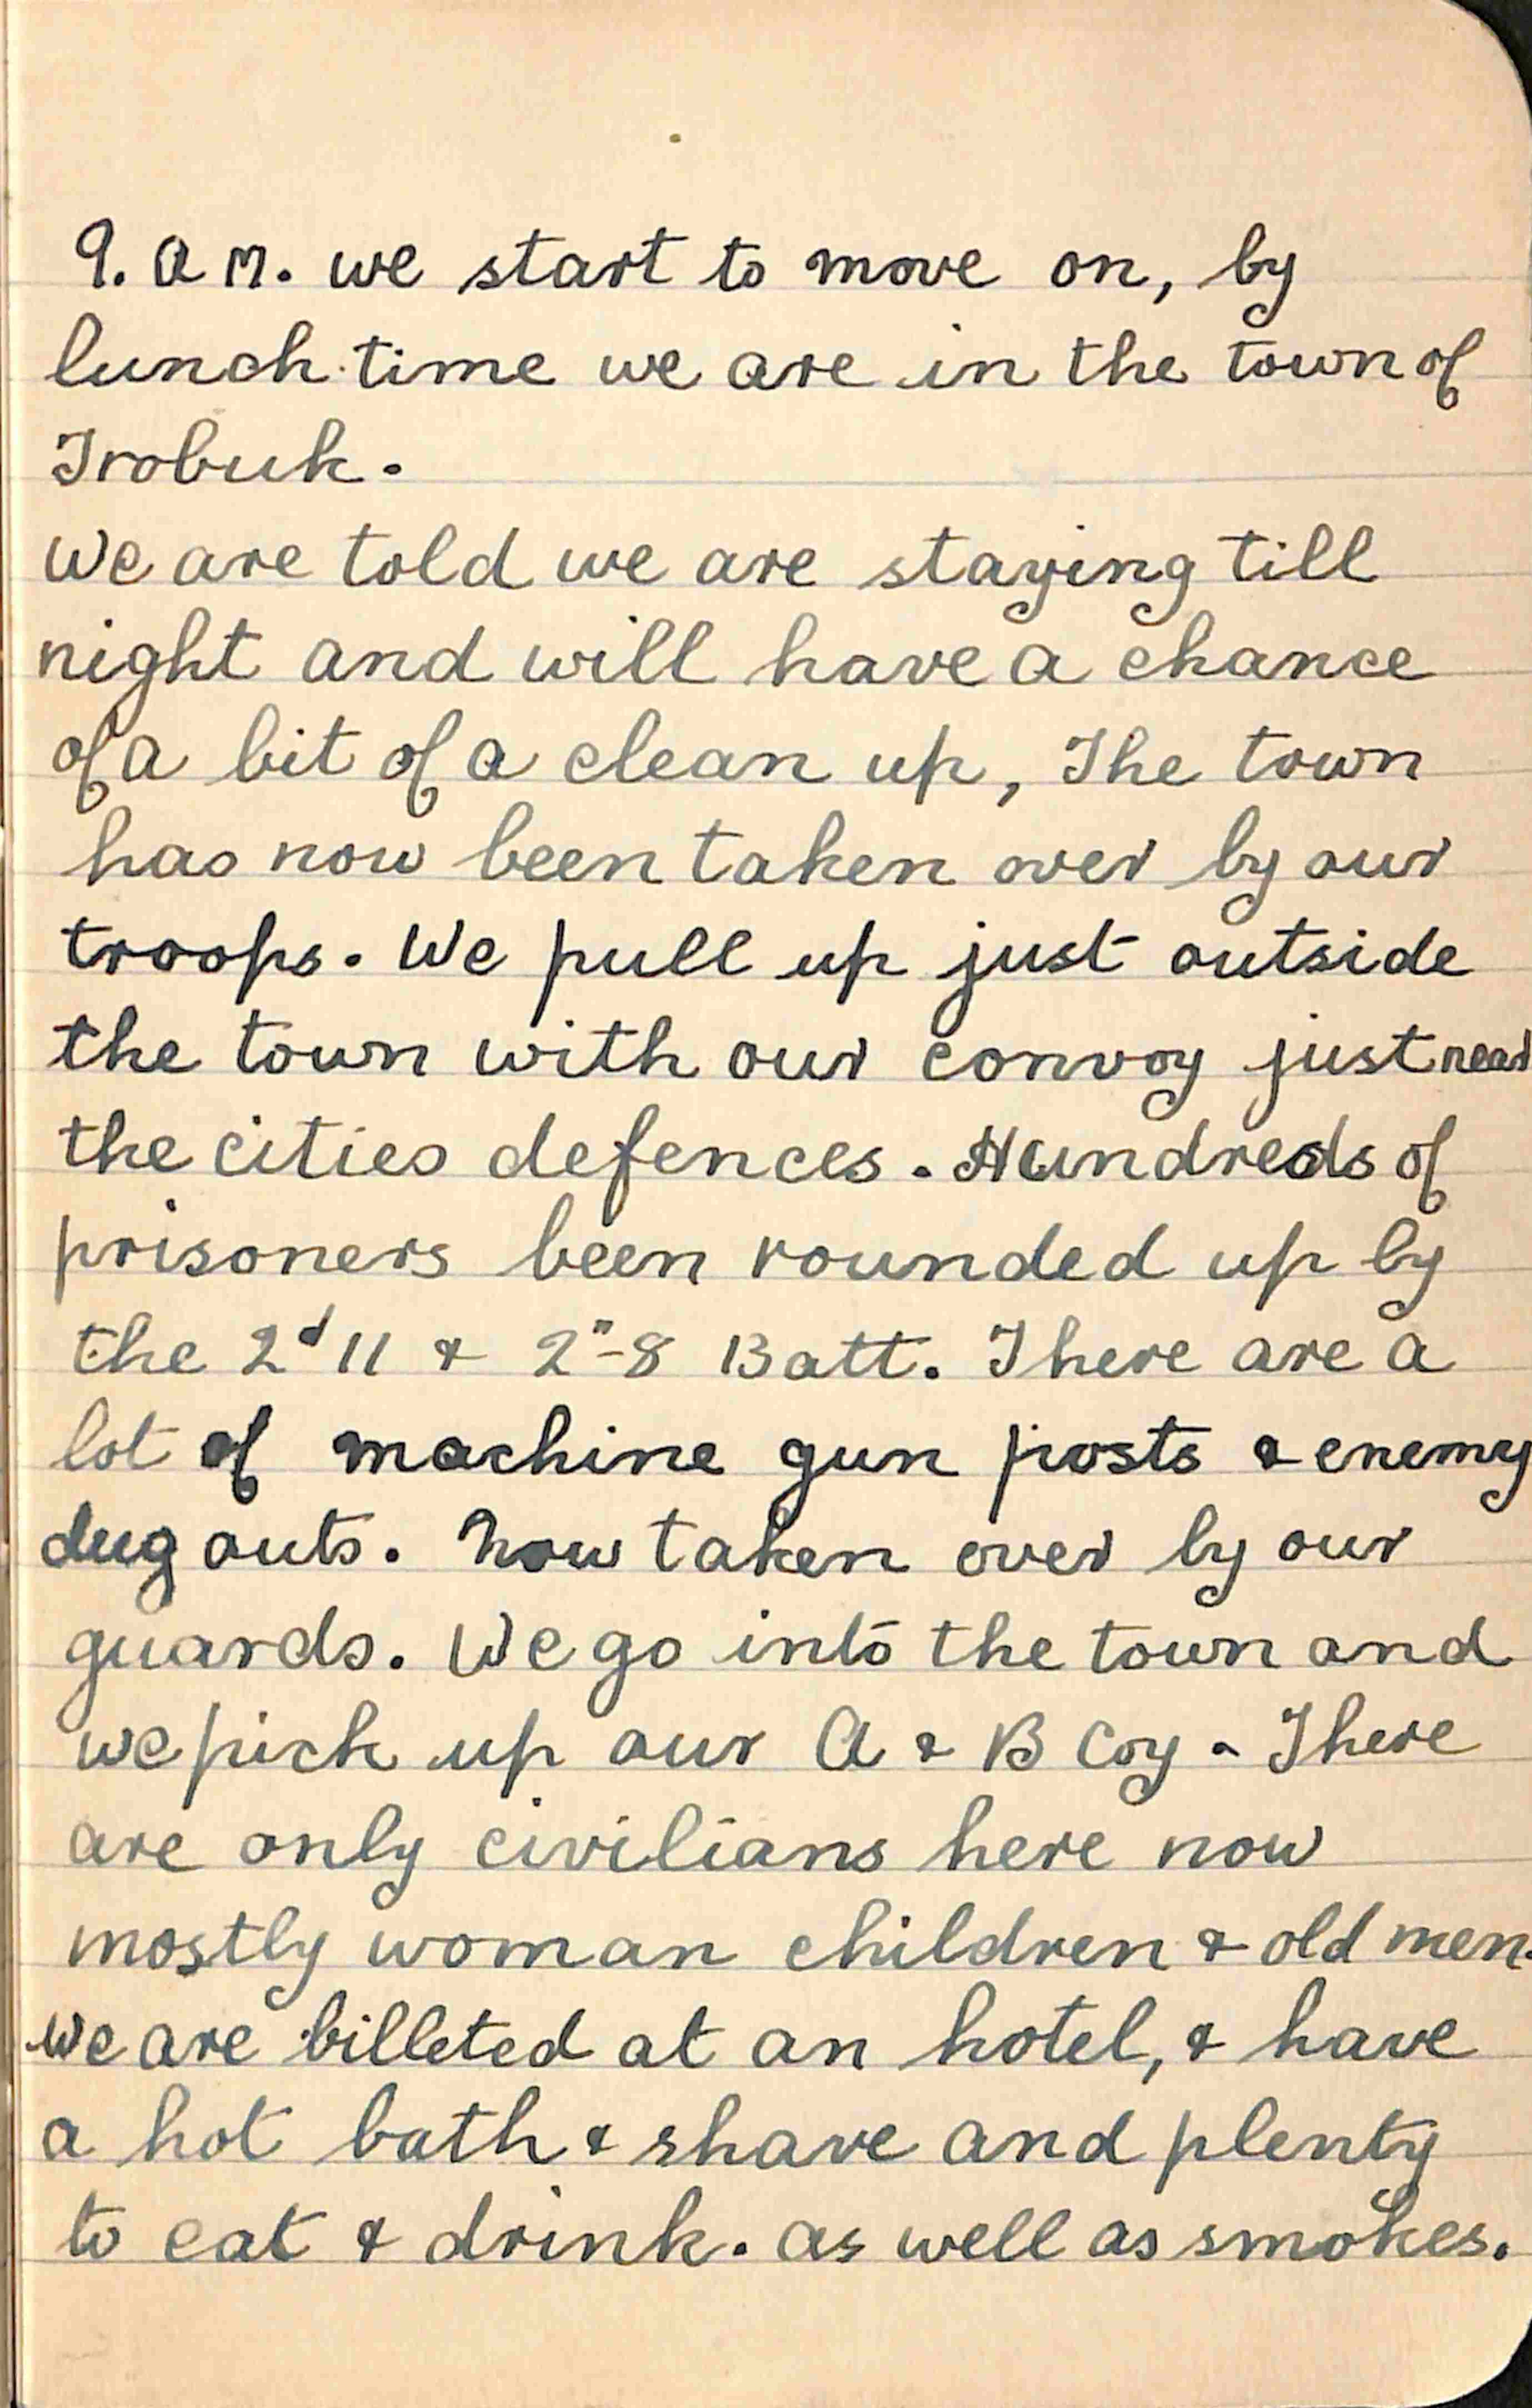 9. a m. we start to move on, by
lunch time we are in the town of
Trobuk.
We are told we are staying till
night and will have a chance
of a bit of a clean up, The town
has now been taken over by our
troops. We pull up just outside
the town with our convoy just near
the cities defences. Hundreds of
prisoners been rounded up by
the 2d 11 & 2n-8 Batt. There are a
lot of machine gun posts & enemy
dug outs. Now taken over by our
guards. We go into the town and
we pick up our A & B Coy - There
are only civilians here now
mostly woman children & old men.
We are billeted at an hotel, & have
a hot bath & shave and plenty
to eat & drink. as well as smokes.